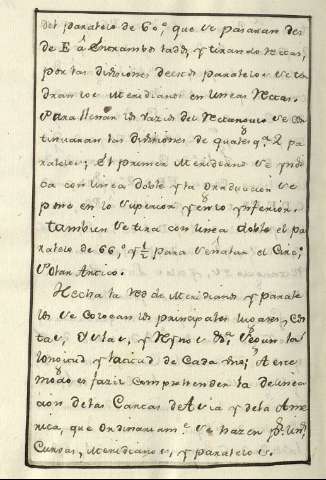 del paralelo de 60°, que se pasaran des
de E â Entrambos lados, y tirando rectas,
por las divisiones de esos paralelos se ten
dran los Meridianos en lineas Rectas.
Para llenar los vazios del Rectangulo se con
tinuaran las divisiones de qualesq.ª 2 pa
ralelos; El primer Meridiano se yndi
ca con linea doble y la Graduacion se
pone en lo superior y en lo ynferior.
tambien se tira con linea doble el pa
ralelo de 66,° y ½ para señalar el Circ.°
Polar Artico.
Hecha la red de Meridianos y parale
los se Colocan los principales lugares, Cos
tas, Yslas, y Reynos &.ª segun la
longitud y latitud de Cada uno; A este
modo es facil comprehender la delinea
cion de las Cartas de Asia y de la Ame
rica, que Ordinariam.e se hazen p.r lin.s
Curvas, Meridianos, y paralelos.